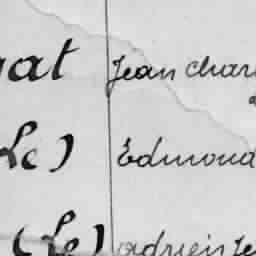 at Jean Char
Le) Edmond
(Le) adrien Je